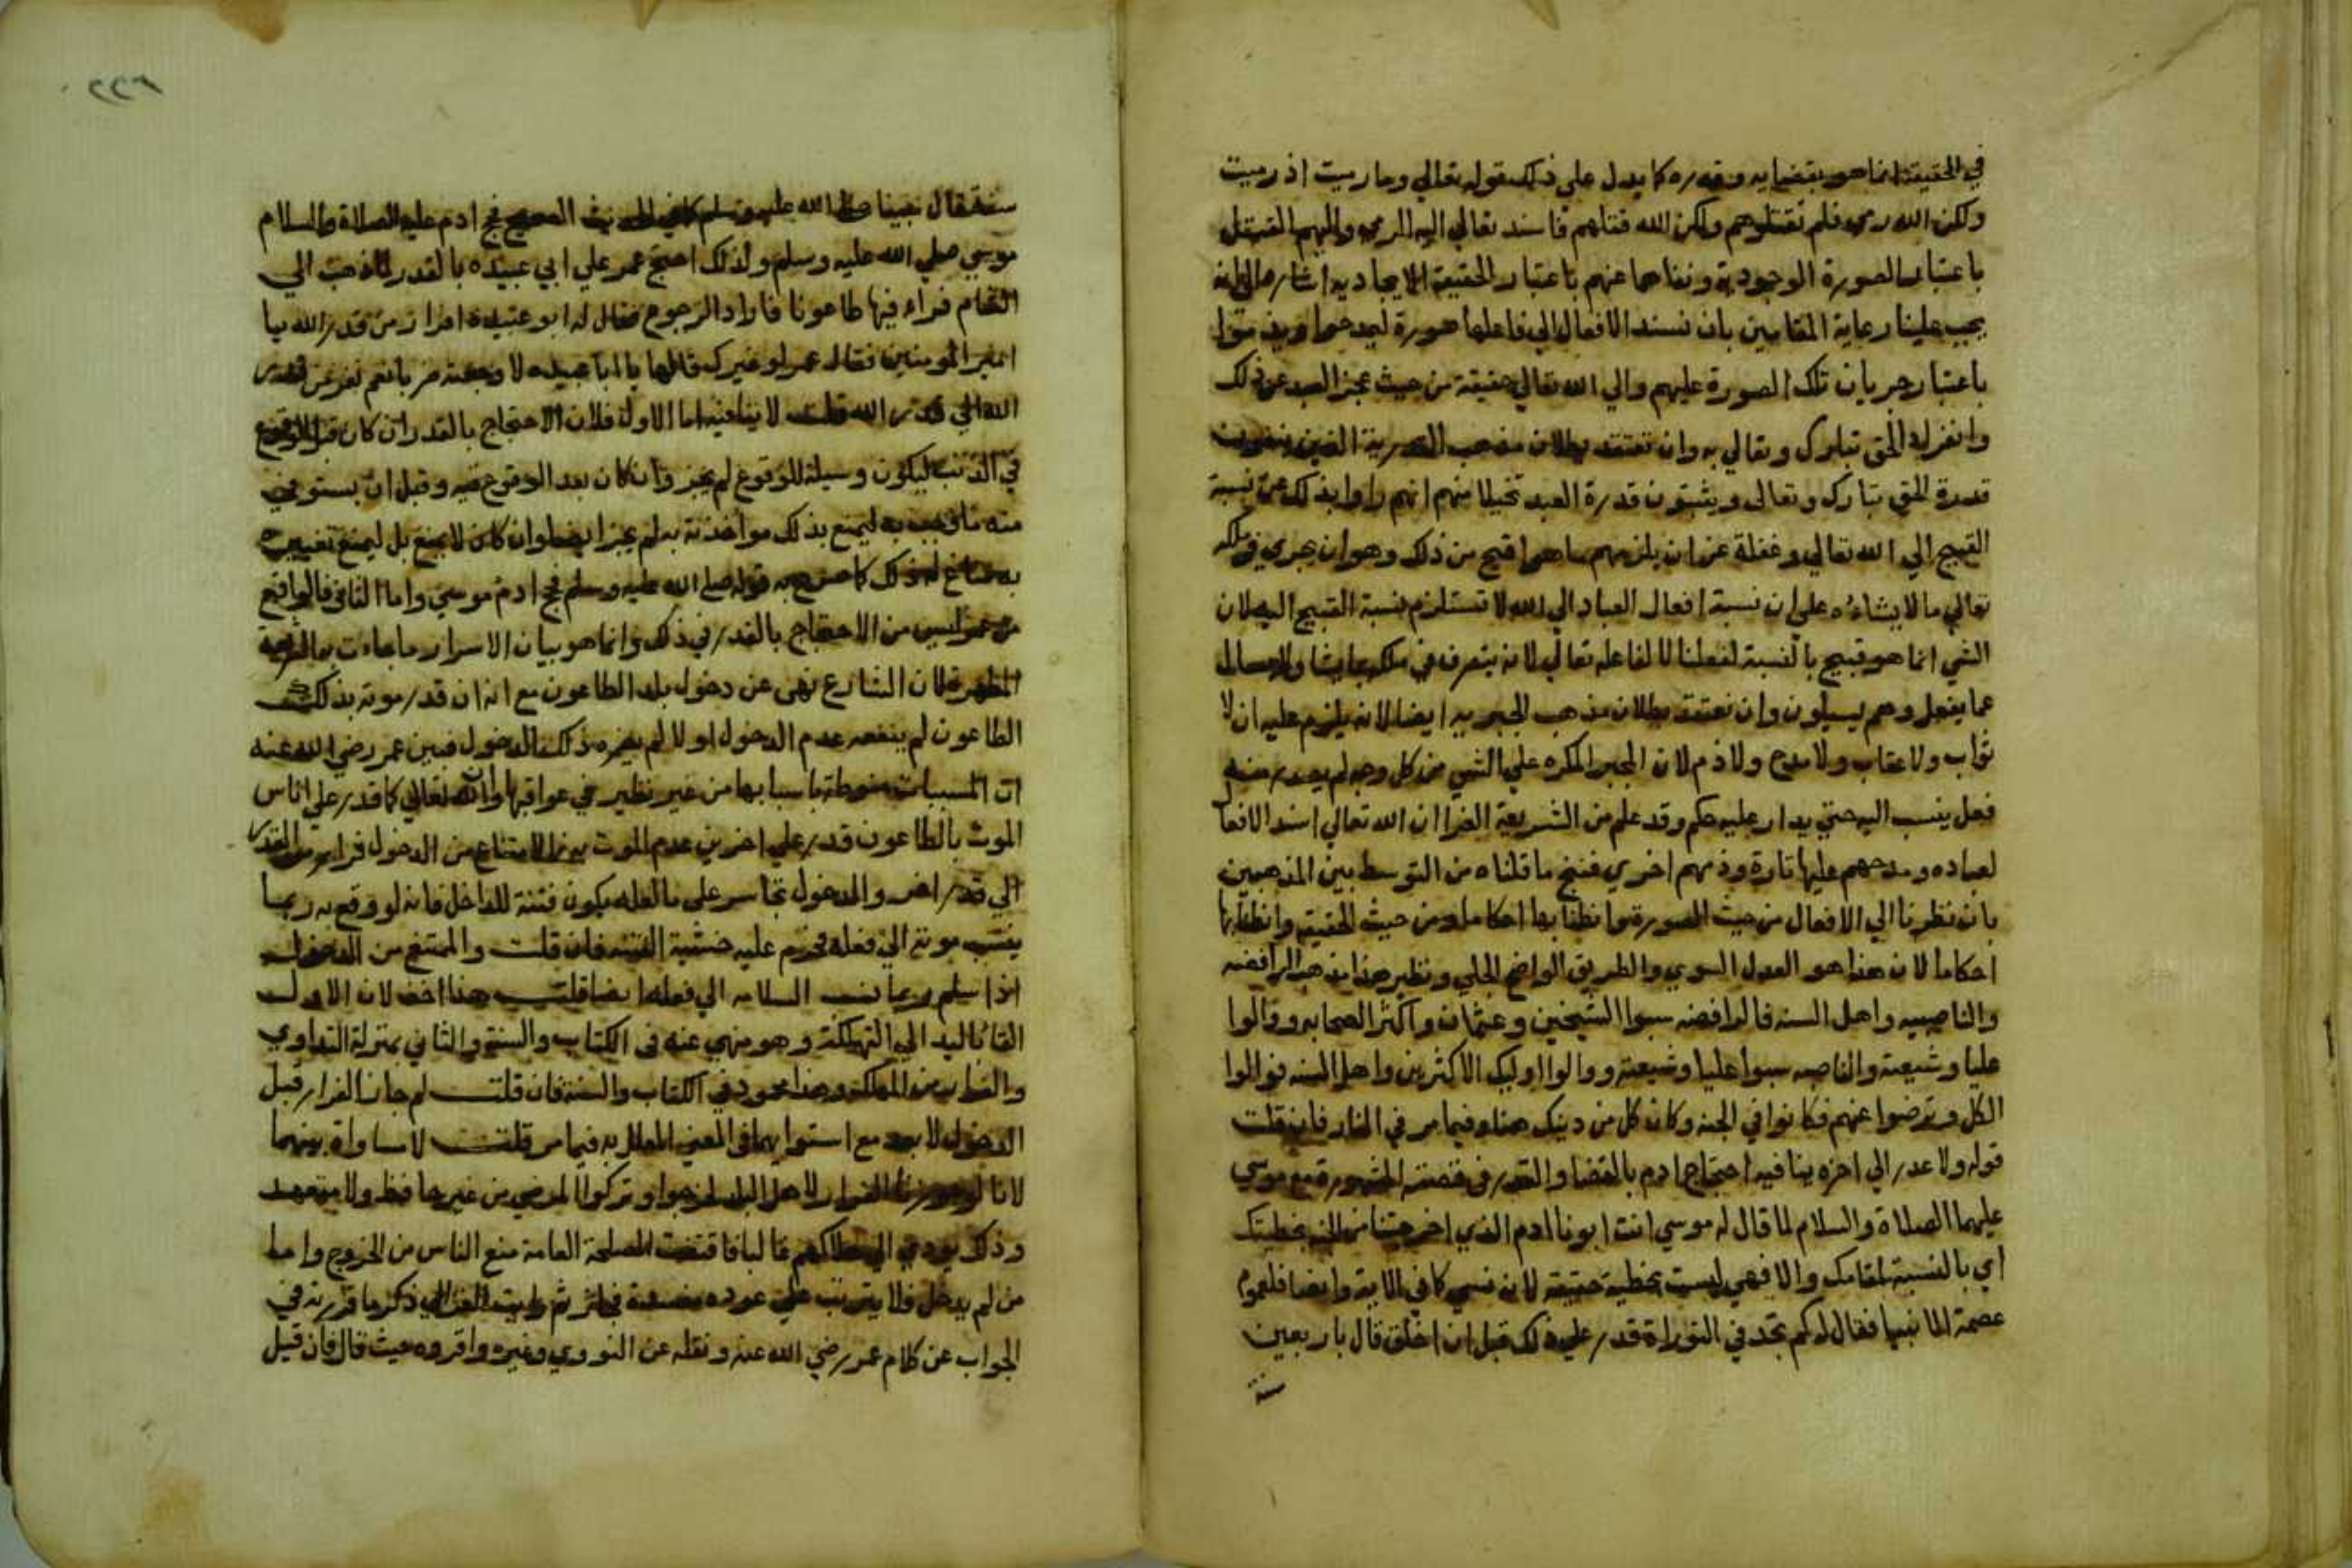 في الحقيقة انما هو بقضايه وقدره كما يدل علي ذلك قوله تعالي وما رميت اذ رميت
ولكن الله رمي فلم تقتلوهم ولكن الله قتلهم فاسند تعالي اليه الرمي واليهم القتل
باعتبار الصورة الوجودية ونفاهما عنهم باعتبار الحقيقة الايجاديه اشارة الي انه
يجب علينا رعاية المقامين بان نسند الافعال الي فاعلها صورة ليمدحوا ويذموا
باعتبار جريان تلك الصورة عليهم والي الله تعالي حقيقة من حيث عجز العبد عن ذلك
وانفراد الحق تبارك وتعالي به وان نعتقد بطلان مذهب القدرية الذين ينفون
قدرة الحق تبارك وتعالى ويثبتون قدرة العبد تخيلا منهم انهم راوا بذلك عدم نسبة
القبيح الي الله تعالي وغفلة عن ان يلزمهم ما هو اقبح من ذلك وهو ان يجري في ملكه
تعالي ما لا يشاءه علي ان نسبة افعال العباد الي الله لا تستلزم نسبة القبيح اليه لان
الشي انما هو قبيح بالنسبة لفعلنا لا لفاعله تعالي لانه يتصرف في ملكه بما يشا ولا يسال
عما يفعل وهم يسيلون وان نعتقد بطلان مذهب الجبريه ايضا لانه يلزم عليه ان لا
ثواب ولا عقاب ولا مدح ولا ذم لان المجبر المكره علي الشي من كل وجه لم يصدر منه
فعل ينسب اليه حتي يدار عليه حكم وقد علم من الشريعة الغرا ان الله تعالي اسند الافعا
لعباده ومدحهم عليها تارة وذمهم اخري فنتج ما قلناه من التوسط بين المذهبين
بان نظرنا الي الافعال من حيث الصورة وانطنا بها احكاما ومن حيث الحقيقة وانطنا بها
احكاما لان هذا هو العدل السوي والطريق الواضح الجلي ونظير هذا مذهب الرافضه
والناصبيه واهل السنه فالرافضه سبوا الشيخين وعثمان واكثر الصحابه ووالوا
عليا وشيعته والناصبه سبوا عليا وشيعته ووالوا اوليك الاكثرين واهل السنه فوالوا
الكل وترضوا عنهم فكانوا في الجنه وكان كل من دينك هنا وفيما مر في النار فان قلت
قوله ولا عدر الي اخره ينافيه احتجاج ادم بالقضا والقدر في قصته المشهورة مع موسي
عليهما الصلاة والسلام لما قال له موسي انت ابونا ادم الذي اخرجتنا من الجنه بخطيتك
اي بالنسبة لمقامك والا فهي ليست بخطية حقيقة لانه نسي كما في الاية وايضا فلعموم
عصمة الانبيا فقال له كم تجد في التوراة قدر علي ذلك قبل ان اخلق قال باربعين
سنة
٢٢٦
سنة فقال نبينا صلي الله عليه وسلم كما في الحديث الصحيح فحج ادم عليه الصلاة والسلام
موسي صلي الله عليه وسلم ولذلك احتج عمر علي ابي عبيده بالقدر لما ذهب الي
الشام فراء فيها طاعونا فاراد الرجوع فقال له ابو عبيدة افرار من قدر الله يا
امير المومنين فقال عمر لو غيرك قالها يا ابا عبيده لا وجعته ضربا نعم نفر من قدر
الله الي قدر الله قلت لا ينافيه اما الاول فلان الاحتجاج بالقدر ان كان قبل الوقوع
في الذنب ليكون وسيلة للوقوع لم يجز وان كان بعد الوقوع فيه وقبل ان يستوفي
منه ما وجب به ليمنع بذلك مواخذته به لم يجز ايضا وان كان لا يمنع بل ليمنع تعييره
به ساغ له ذلك كما صرح به قوله صلي الله عليه وسلم فحج ادم موسي واما الثاني فالواقع
من عمر ليس من الاحتجاج بالقدر في ذلك وانما هو بيان الاسرار ما جات به الشريعة
المطهرة لان الشارع نهى عن دخول بلد الطاعون مع انه ان قدر موته بذلك
الطاعون لم ينفعه عدم الدخول او لا لم يضره ذلك الدخول فبين عمر رضي الله عنه
ان المسببات منوطة باسبابها من غير نظير في عواقبها وان الله تعالي كما قدر علي اناس
الموت بالطاعون قدر علي اخرين عدم الموت به فالامتناع من الدخول فرار من القدر
الي قدر اخر والدخول تجاسر على ما لعله يكون فتنة للداخل فانه لو وقع به ربما
ينسب موته الي فعله فحرم عليه خشية الفتنه فان قلت والممتنع من الدخول
اذا سلم ربما نسب السلامه الي فعله ايضا قلت هذا اخف لان الاول
القا باليد الي التهلكة وهو منهي عنه في الكتاب والسنة والثاني بمنزلة التداوي
والفرار من الهلكة وهذا محمود في الكتاب والسنة فان قلت لم جاز الفرار قبل
الدخول لا بعد مع استوايهما في المعنى المعلل به فيما مر قلت لا مساواة بينهما
لانا لو جوزنا الفرار لاهل البلد لخرجوا وتركوا المرضي من غير حافظ ولا متعهد
وذلك يودي الي هلاكهم غالبا فاقتضت المصلحة العامة منع الناس من الخروج واما
من لم يدخل فلا يترتب علي عوده مفسدة ثم رايت الغزالي ذكر ما قررته في
الجواب عن كلام عمر رضي الله عنه ونقله عن النووي وغيره واقروه حيث قال فان قيل